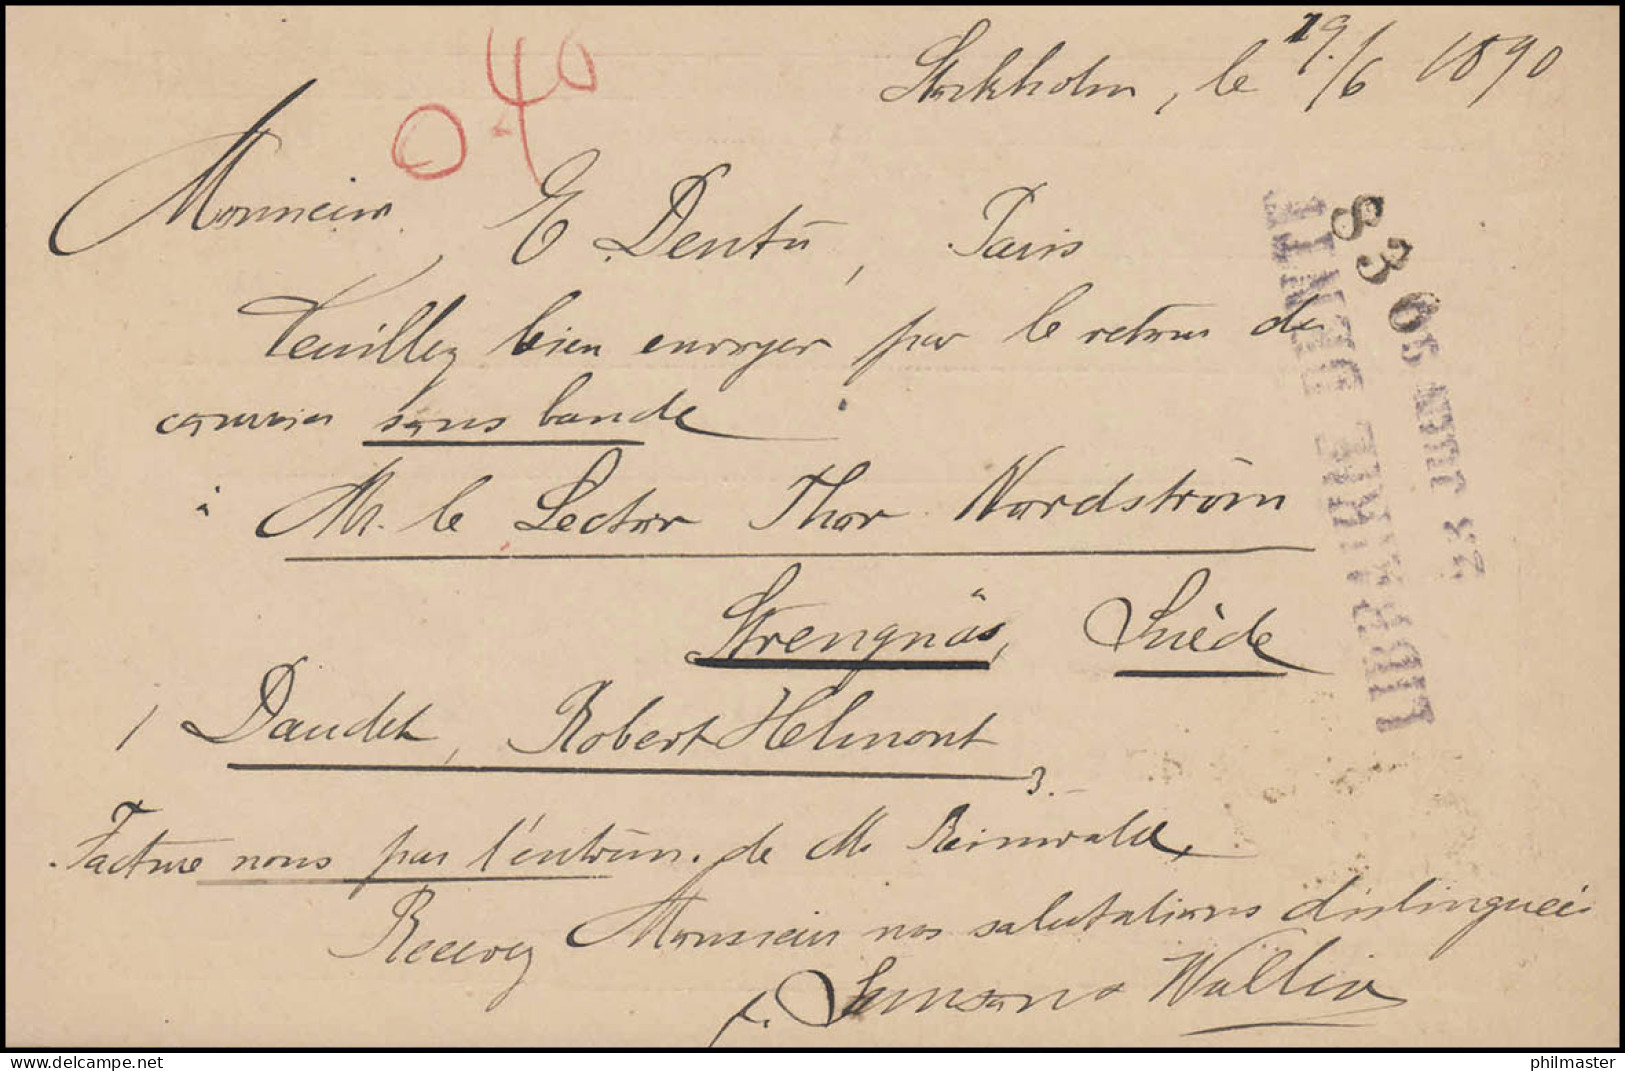 040
Stockholm, le 19/6 1890
Monsieur E Dentu, Paris
Veuillez bien envoyer par le retour du
courrier sous bande
à Mr. le Lector Thor Nordström
Strengnäs, Suède
1 Daudet, Robert Helmont
3.
Facture nous par l'entrem. de M. Reinwald,
Recevez Monsieur nos salutations distinguées
Samson & Wallin
LIBRAIRIE DENTU
23 JUIN 90
83
philmaster